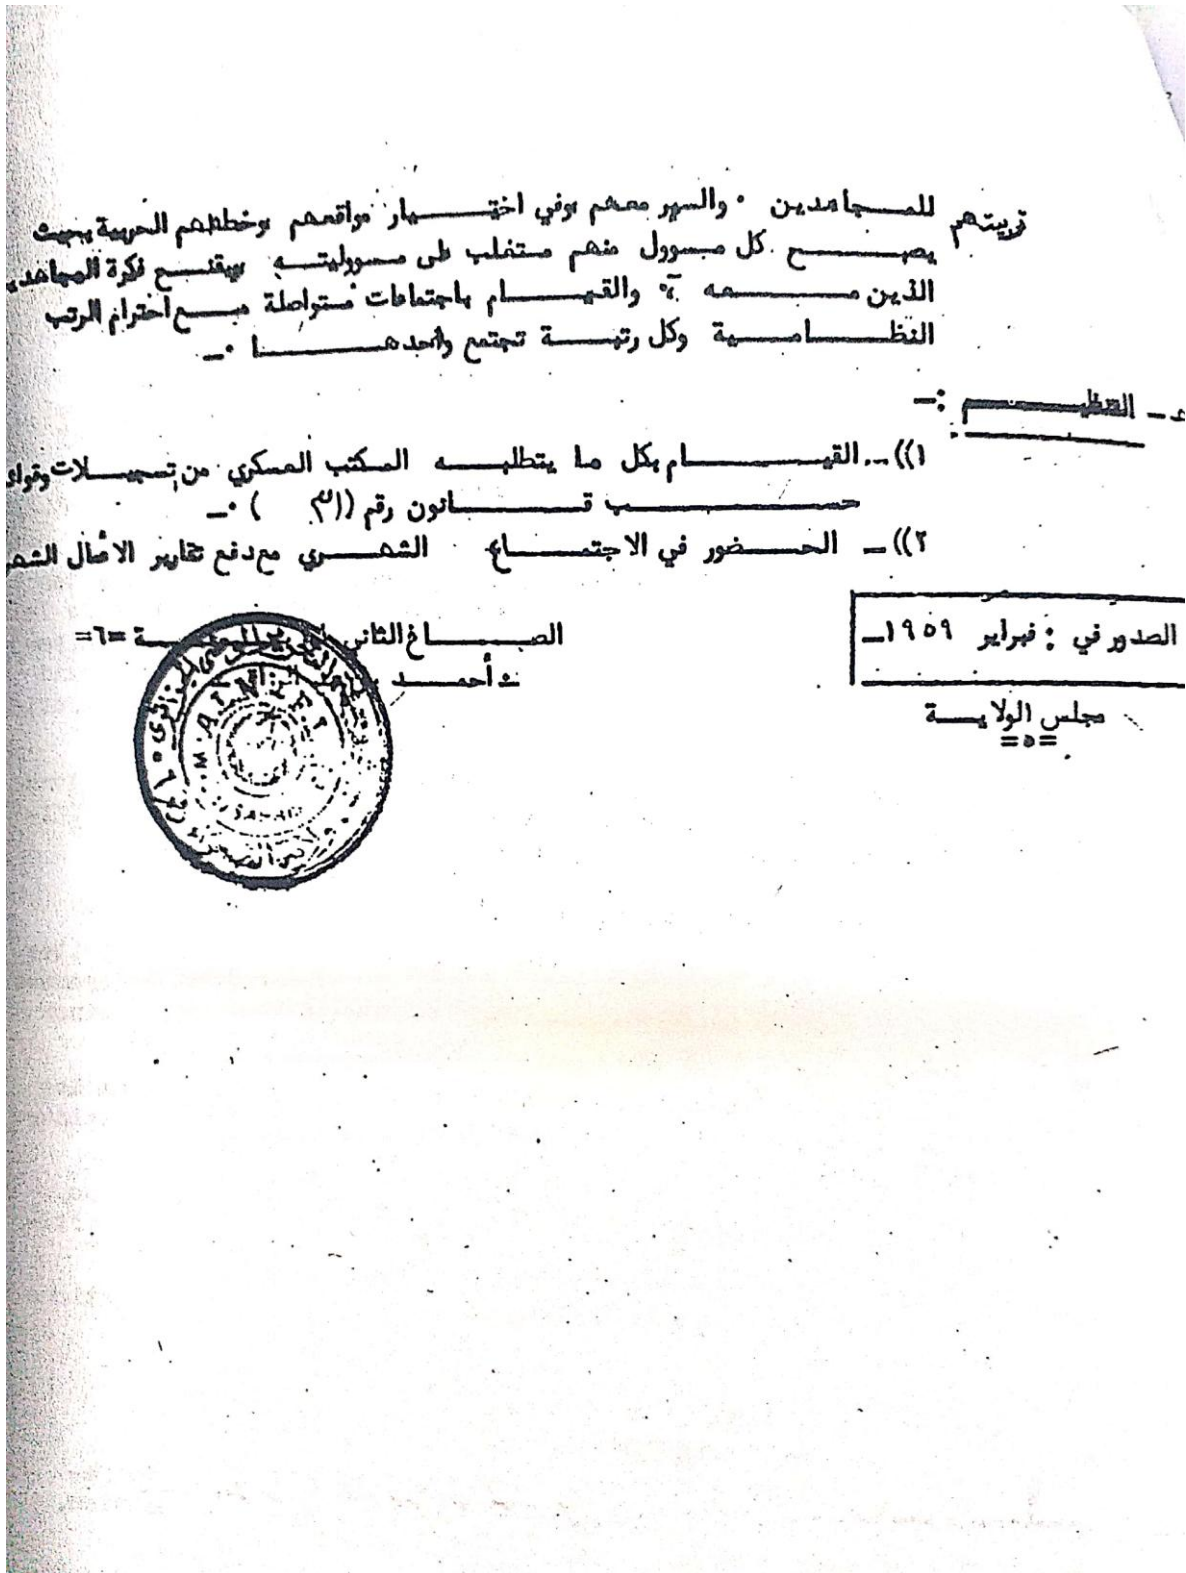 تربيتهم للمجاهدين . والسهر معهم وفي اختيار مواقعهم وخططهم الحربية بحيث
يصبح كل مسوول منهم متغلب على مسووليته ويقنع فكرة المجاهدين
الذين معه . والقيام باجتماعات متواصلة مع احترام الرتب
النظامية وكل رتبة تجتمع وحدها .ـ
ـ التنظيم :ـ
١))ـ القيام بكل ما يتطلبه المكتب العسكري من تسجيلات
حسب قانون رقم (( ) .ـ
٢))ـ الحضور في الاجتماع الشهري مع دفع تقارير الاعمال
الصدور في : فبراير ١٩٥٩ـ
مجلس الولاية
=٥=
الصاغ الثاني =٦=
أحمد
A.L.N